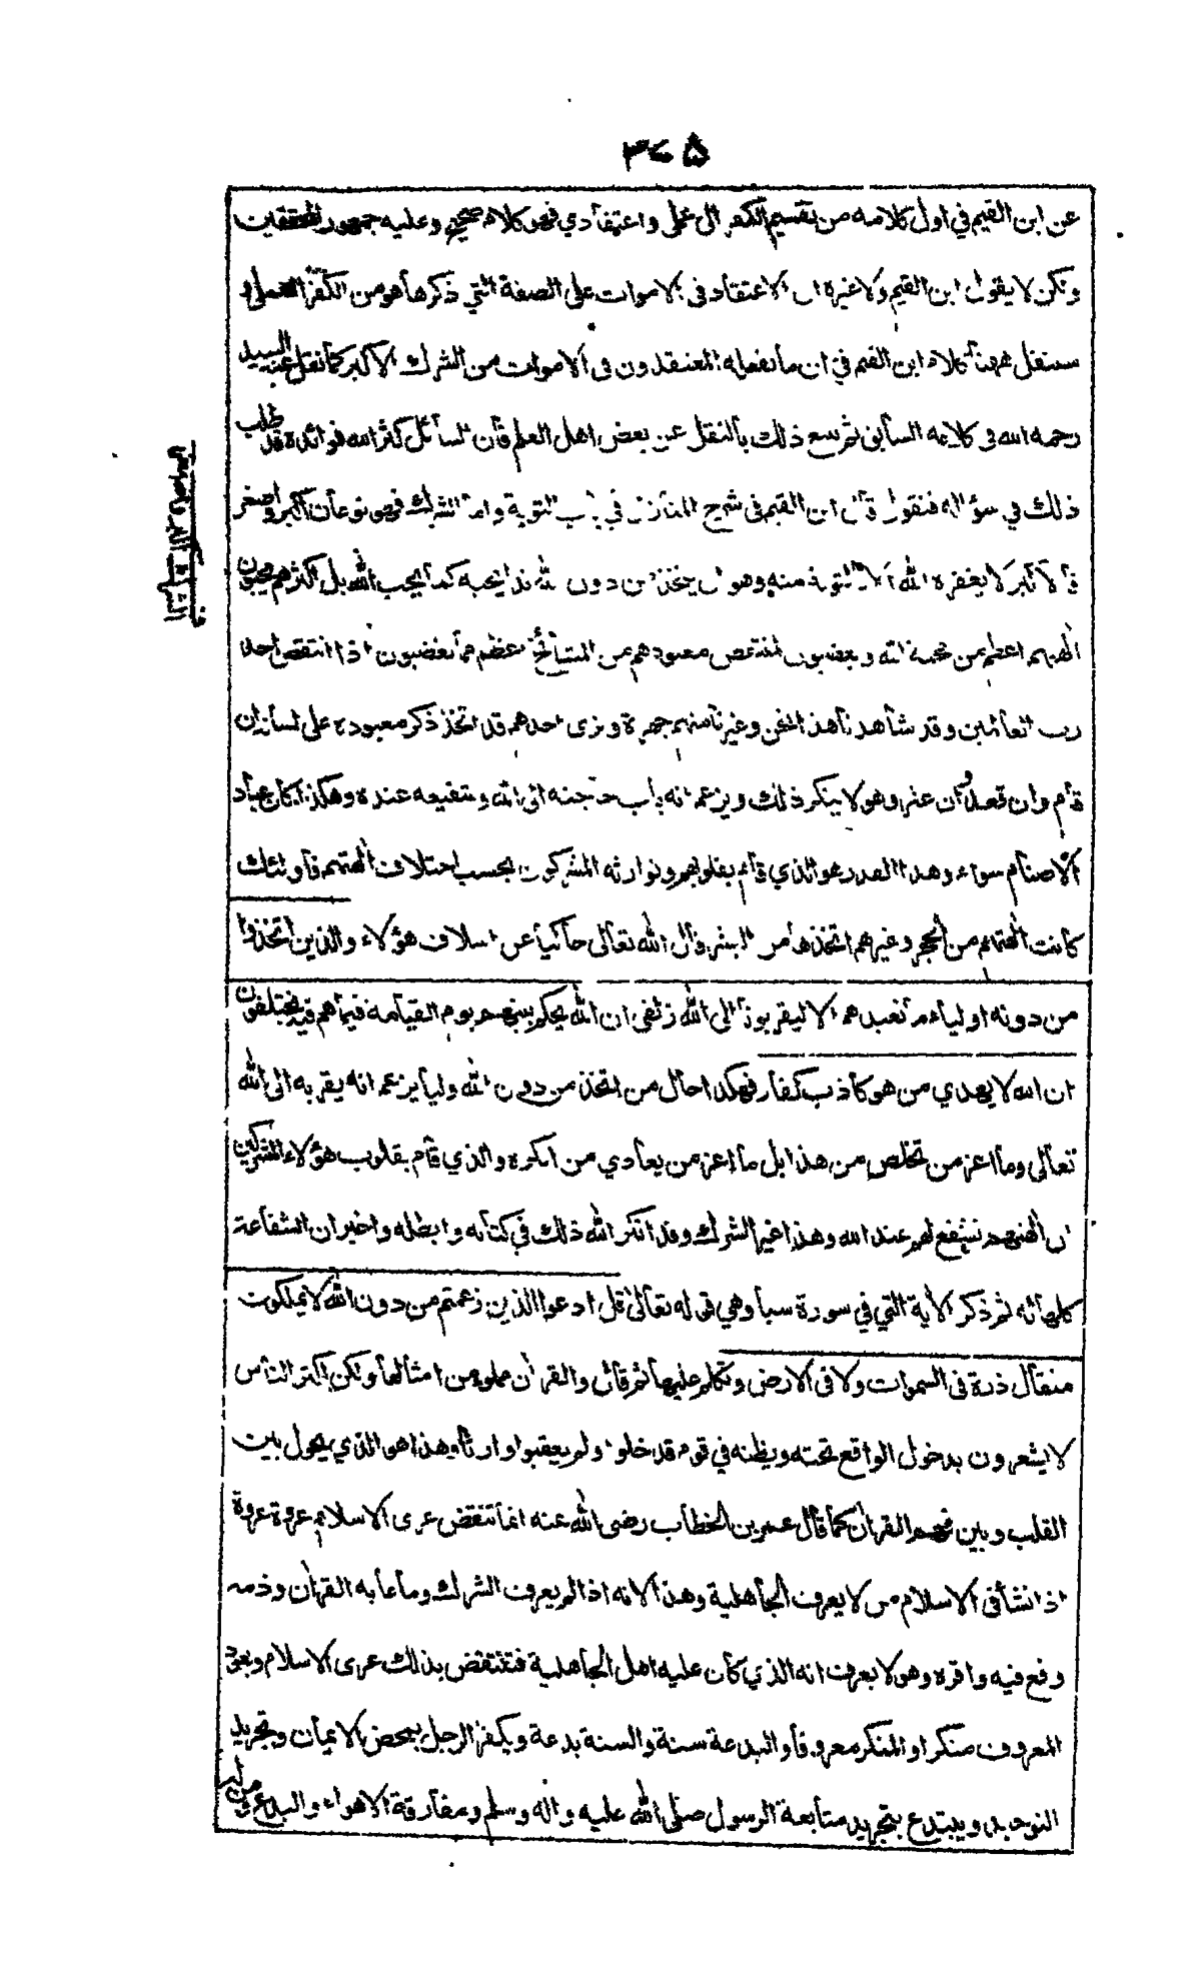 ٣٧٥
عن ابن القيم في اول كلامه من تقسيم الكفر الى عملى واعتقادي فهو كلام صحيح وعليه جمهور المحققين
ولكن لا يقول ابن القيم ولا غيره ان الاعتقاد فى الاموات على الصفة التي ذكرها هو من الكفر العملى و
سننقل ههنا كلام ابن القيم في ان ما يفعله المعتقدون فى الاموات من الشرك الاكبر كما نقل عنه السيد
رحمه الله فى كلامه السابق ثم نتبع ذلك بالنقل عن بعض اهل العلم فان السائل كثر الله فوائده قد طلب
ذلك في سؤاله فنقول قال ابن القيم فى شرح المنازل في باب التوبة واما الشرك فهو نوعان اكبر واصغر
فالاكبر لا يغفره الله الا بالتوبة منه وهو ان يتخذ من دون الله ندا يحبه كما يحب الله بل اكثرهم يحبون
الهتهم اعظم من محبة الله ويغضبون لمنتقص معبودهم من المشائخ اعظم مما يغضبون اذا انتقص احد
رب العالمين وقد شاهدنا هذا نحن وغيرنا منهم جهرة وترى احدهم قد اتخذ ذكر معبوده على لسانه ان
قام وان قعد وان عثر وهو لا ينكر ذلك ويزعم انه باب حاجته الى الله وشفيعه عنده وهكذا كان عباد
الاصنام سواء وهذا القدر هو الذي قام بقلوبهم وتوارثه المشركون بحسب اختلاف الهتهم فاولئك
كانت الهتهم من الحجر وغيرهم اتخذها من البشر قال الله تعالى حاكيا عن اسلاف هؤلاء والذين اتخذوا
من دونه اولياء ما نعبدهم الا ليقربونا الى الله زلفى ان الله يحكم بينهم يوم القيامة فيما هم فيه يختلفون
ان الله لا يهدي من هو كاذب كفار فهكذا حال من اتخذ من دون الله وليا يزعم انه يقربه الى الله
تعالى وما اعز من تخلص من هذا بل ما اعز من يعادي من انكره والذي قام بقلوب هؤلاء المشركين
ان الهتهم تشفع لهم عند الله وهذا عين الشرك وقد انكر الله ذلك في كتابه وابطله واخبر ان الشفاعة
كلها له ثم ذكر الاية التي في سورة سبأ وهي قوله تعالى قل ادعوا الذين زعمتم من دون الله لا يملكون
مثقال ذرة فى السموات ولا فى الارض وتكلم عليها ثم قال والقران مملوء من امثالها ولكن اكثر الناس
لا يشعرون بدخول الواقع تحته ويظنه في قوم قد خلوا ولم يعقبوا وارثا وهذا هو الذي يحول بين
القلب وبين فهم القران كما قال عمر بن الخطاب رضى الله عنه انما تنقض عرى الاسلام عروة عروة
اذا نشأ فى الاسلام من لا يعرف الجاهلية وهذا لانه اذا لم يعرف الشرك وما عابه القران وذمه
وقع فيه واقره وهو لا يعرف انه الذي كان عليه اهل الجاهلية فتنتقض بذلك عرى الاسلام ويعود
المعروف منكرا والمنكر معروفا والبدعة سنة والسنة بدعة ويكفر الرجل بمحض الايمان وتجريد
التوحيد ويبتدع بتجريد متابعة الرسول صلى الله عليه واله وسلم ومفارقة الاهواء والبدع
الشرك اكبر واصغر